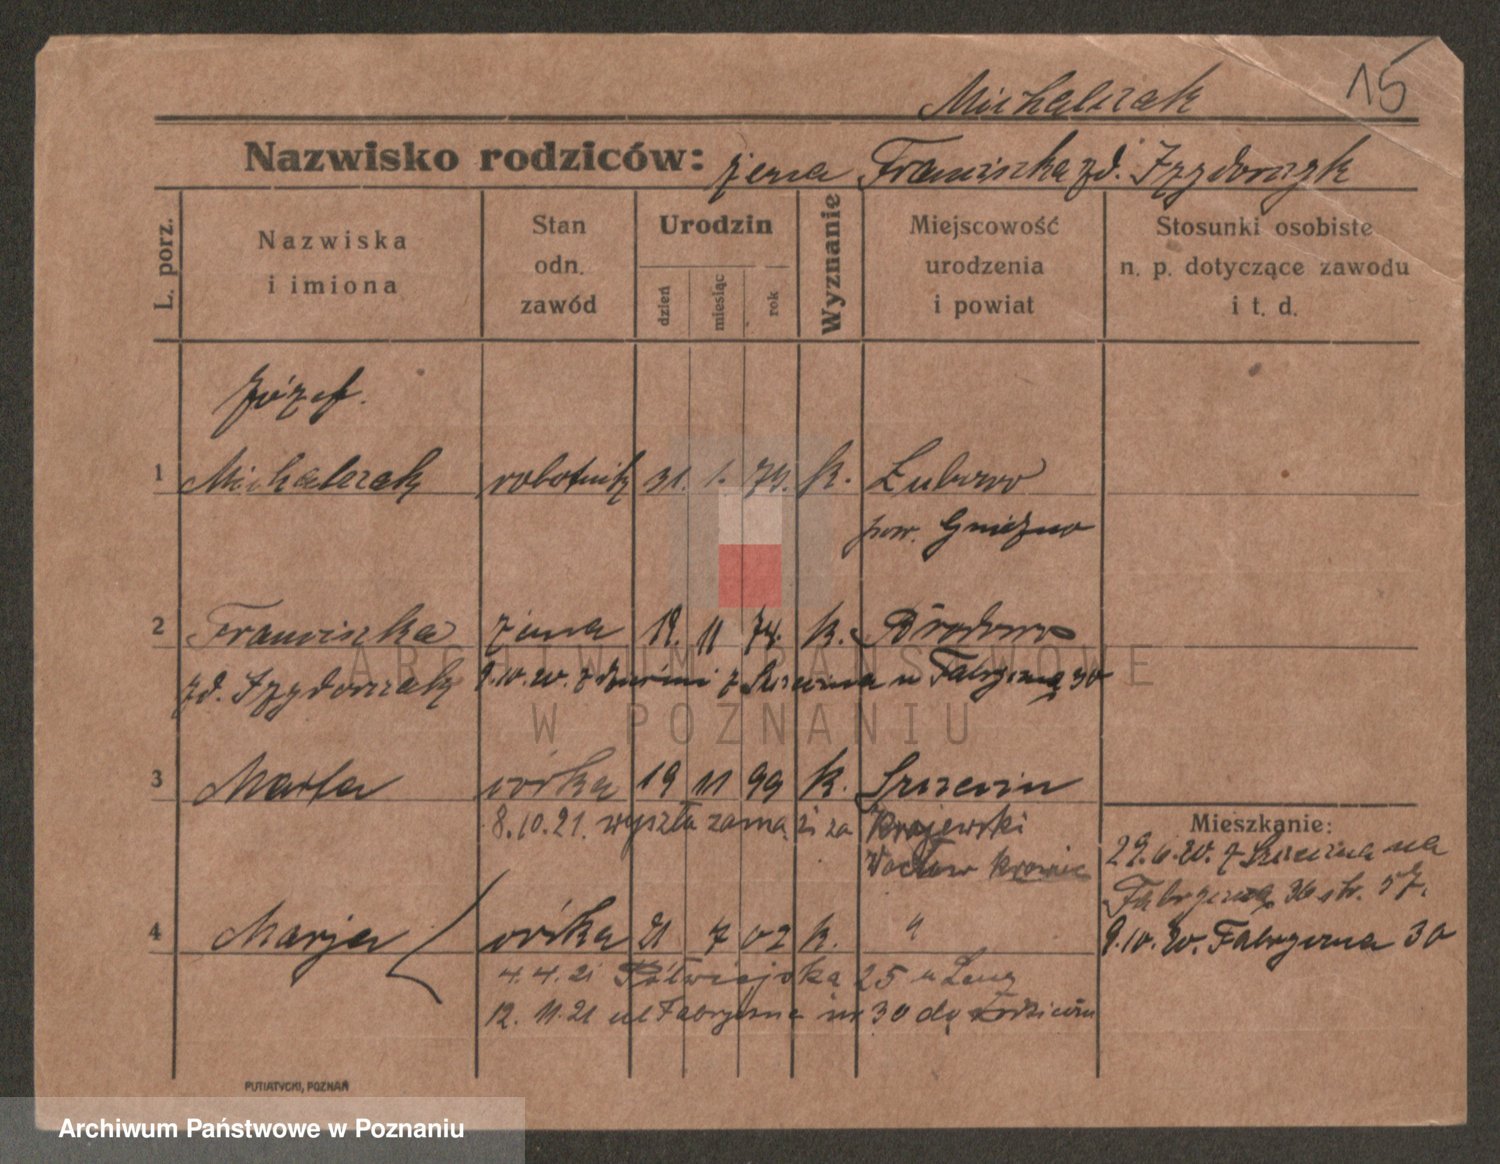 Michalczak 15
Nazwisko rodziców: żena Franciszka zd. Izydorczyk
L. porz.
Nazwiska i imiona
Stan odn. zawód
Urodzin
dzień
miesiąc
rok
Wyznanie
Miejscowość urodzenia i powiat
Stosunki osobiste n. p. dotyczące zawodu i t. d.
Józef.
1 Michalczak robotnik 31. 1. 79. k. Łubowo
pow. Gniezno
2 Franciszka żena 18. 11 74. k.
zd. Izydorczak 9.10.20. z Szczecina u Fabryczną 30
3 Marta córka 19 11 99 k. Szczecin
8.10.21. wyszła zamąż za Krajewski
Wacław
Mieszkanie:
29.6.20. z Szczecina na
Fabryczną 36 str. 57.
4 Marja córka 21 7 02 k. "
9.10.20. Fabryczna 30
4.4.21 Półwiejska 25 u
12. 11.21 ul Fabryczna nr 30 do
PUTIATYCKI, POZNAŃ
ARCHIWUM PAŃSTWOWE
W POZNANIU
Archiwum Państwowe w Poznaniu